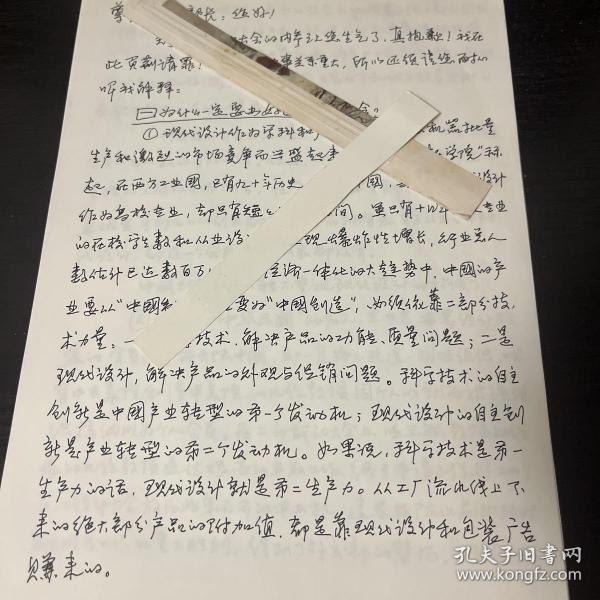 尊 部长：您好！
会的内率让您生气了，真抱歉！我在
此页剖请罪！ 事关重大，所以还须请您再加
听我解释：
㊀为什么一定要办好 会。
①现代设计作为学科和 机器批量
生产和激烈的市场竞争而兴盛起来 学院”标
起，在西方工业国，已有九十年历史 国， 设计
作为高校专业，却只有短 间。虽只有十四年 专业
的在校学生数和从业设 现爆炸性增长，行业总人
数估计已达数百万 经济一体化的大趋势中，中国的产
业要从“中国制 变为“中国创造”，必须依靠二部分技
术力量：一 技术，解决产品的功能、质量问题；二是
现代设计，解决产品的外观与促销问题。科学技术的自主
创新是中国产业转型的第一个发动机；现代设计的自主创
新是产业转型的第二个发动机。如果说，科学技术是第一
生产力的话，现代设计就是第二生产力。从工厂流水线上下
来的绝大部分产品的附加值，都是靠现代设计和包装广告
赚来的。
孔夫子旧书网
www.kongfz.com